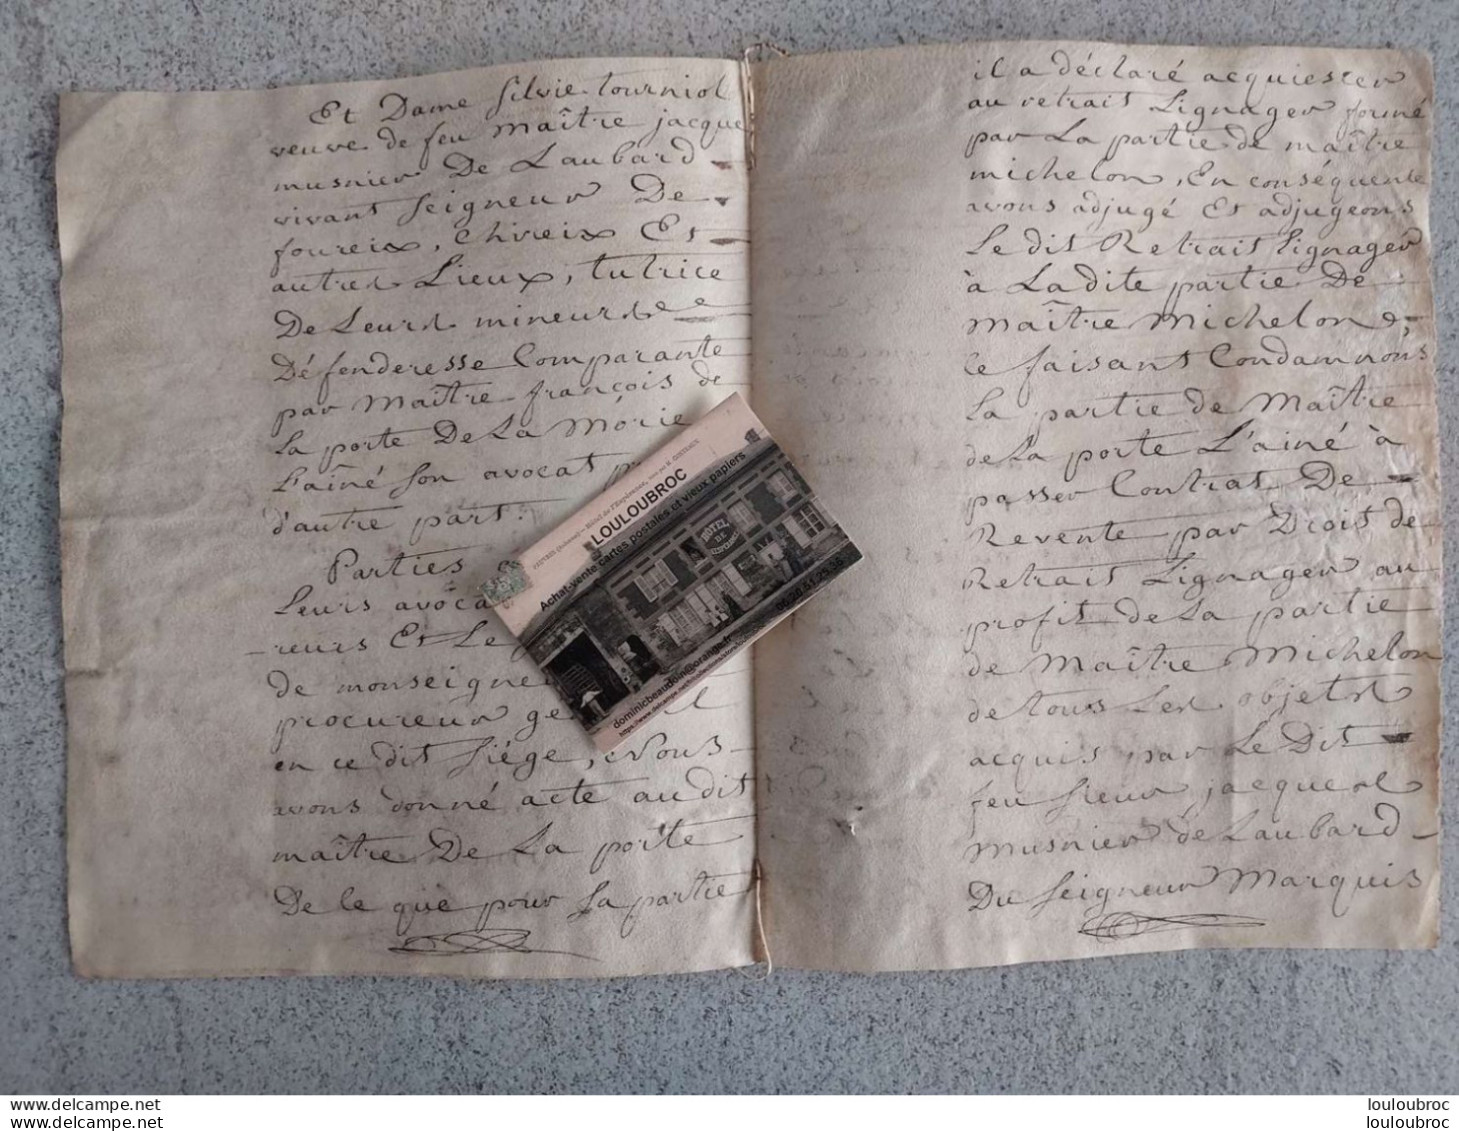 Et Dame Silvie tourniol
veuve de feu maître jacque
musnier De Laubard
vivant Seigneur De
foureix, Chireix Et
autres Lieux, tutrice
De Leurs mineurs
Défenderesse Comparante
par maître françois de
la porte De La Mórie
L'aîné son avocat
d'autre part.
Parties
Leurs avoca
reurs Et Le
de monseign
procureur ge
en ce dit siége, Nous
avons donné acte audit
maître De La porte
De le que pour Sa partie
il a déclaré acquiescer
au retrait Lignager formé
par La partie de maître
michelon, En conséquence
avons adjugé Et adjugeons
Le dit Retrait Lignager
à La dite partie De
maître Michelon,
ce faisant Condamnons
La partie de Maître
de La porte L'ainé à
passer Contrat De
Revente par Droit de
Retrait Lignager au
profit de La partie
de Maître Michelon
de tous Les objets
acquis par Le Dit
feu Sieur jacques
musnier de Laubard
Du Seigneur Marquis
LOULOUBROC
Achat-vente cartes postales et vieux papiers
HÔTEL
DE
dominicbeaudoin@orange.fr
louloubroc
louloubroc
delcampe.net
delcampe.net